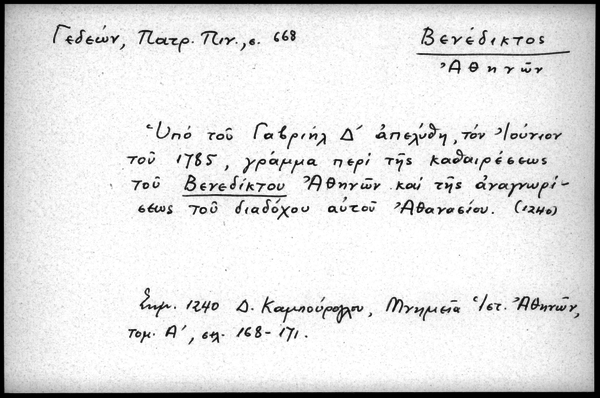 Γεδεών, Πατρ. Πιν., σ. 668
Βενέδικτος
Ἀθηνῶν
Ὑπό τοῦ Γαβριήλ Δ΄ ἀπελύθη, τόν Ἰούνιον
τοῦ 1785, γράμμα περί τῆς καθαιρέσεως
τοῦ Βενεδίκτου Ἀθηνῶν καί τῆς ἀναγνωρί-
σεως τοῦ διαδόχου αὐτοῦ Ἀθανασίου. (1240)
Σημ. 1240 Δ. Καμπούρογλου, Μνημεῖα Ἱστ. Ἀθηνῶν,
τομ. Α΄, σελ. 168-171.